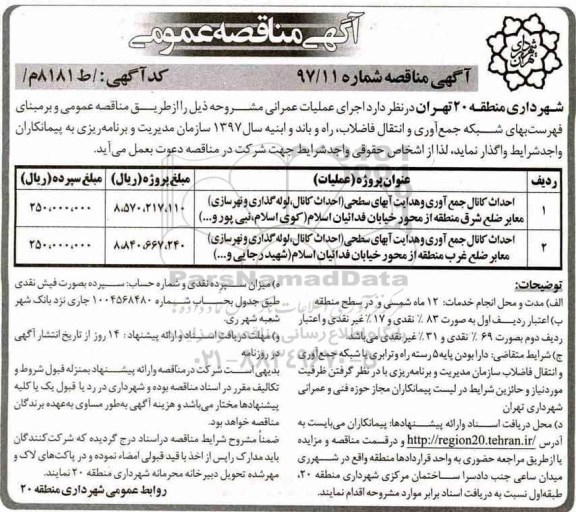 آگهی مناقصه عمومی
شهرداری تهران
آگهی مناقصه شماره ۹۷/۱۱
کدآگهی: /ط ۸۱۸۱م/
شهرداری منطقه ۲۰ تهران در نظر دارد اجرای عملیات عمرانی مشروحه ذیل را از طریق مناقصه عمومی و برمبنای
فهرست‌بهای شبکه جمع‌آوری و انتقال فاضلاب، راه و باند و ابنیه سال ۱۳۹۷ سازمان مدیریت و برنامه‌ریزی به پیمانکاران
واجدشرایط واگذار نماید، لذا از اشخاص حقوقی واجدشرایط جهت شرکت در مناقصه دعوت بعمل می‌آید.
ردیف عنوان پروژه (عملیات) مبلغ پروژه (ریال) مبلغ سپرده (ریال)
۱ احداث کانال جمع آوری وهدایت آبهای سطحی(احداث کانال،لوله گذاری ونهرسازی) ۸،۵۷۰،۲۱۷،۱۱۰ ۲۵۰،۰۰۰،۰۰۰
معابر ضلع شرق منطقه از محور خیابان فدائیان اسلام(کوی اسلام،نبی پور و...)
۲ احداث کانال جمع آوری وهدایت آبهای سطحی(احداث کانال،لوله گذاری ونهرسازی) ۸،۸۴۰،۶۶۷،۲۴۰ ۲۵۰،۰۰۰،۰۰۰
معابر ضلع غرب منطقه از محور خیابان فدائیان اسلام(شهید رجایی و...)
توضیحات:
الف) مدت و محل انجام خدمات: ۱۲ ماه شمسی و در سطح منطقه
ب) اعتبار ردیف اول به صورت ۸۳ ٪ نقدی و ۱۷ ٪ غیر نقدی و اعتبار
ردیف دوم بصورت ۶۹ ٪ نقدی و ۳۱ ٪ غیرنقدی می‌باشد
ج) شرایط متقاضی: دارا بودن پایه ۵ رسته راه وترابری یا شبکه جمع‌آوری
و انتقال فاضلاب سازمان مدیریت و برنامه‌ریزی با در نظر گرفتن ظرفیت
موردنیاز و حائزین شرایط در لیست پیمانکاران مجاز حوزه فنی و عمرانی
شهرداری تهران
د) محل دریافت اسناد وارائه پیشنهادها: پیمانکاران می‌بایست به
آدرس http://region20.tehran.ir/ و درقسمت مناقصه و مزایده
یا ازطریق مراجعه حضوری به واحد قراردادها منطقه واقع در شهرری
میدان ساعی جنب دادسرا ساختمان مرکزی شهرداری منطقه ۲۰،
طبقه‌اول نسبت به دریافت اسناد برابر موارد مشروحه اقدام نمایند.
ه) میزان سپرده نقدی و شماره حساب: سپرده بصورت فیش نقدی
طبق جدول بحساب شماره ۱۰۰۴۵۶۸۴۸۰ جاری نزد بانک شهر
شعبه شهر ری.
و) مهلت دریافت اسناد وارائه پیشنهاد: ۱۴ روز از تاریخ انتشار آگهی
در روزنامه
بدیهی است شرکت در مناقصه وارائه پیشنهاد بمنزله قبول شروط و
تکالیف مقرر در اسناد مناقصه بوده و شهرداری در رد یا قبول یک یا کلیه
پیشنهادها مختار می‌باشد و هزینه آگهی به‌طور مساوی به‌عهده برندگان
مناقصه خواهد بود.
ضمناً مشروح شرایط مناقصه در اسناد درج گردیده که شرکت‌کنندگان
باید مدارک را پس از اخذ با قید قبولی امضاء نموده و در پاکت‌های لاک و
مهرشده تحویل دبیرخانه محرمانه شهرداری منطقه ۲۰ نمایند.
روابط عمومی شهرداری منطقه ۲۰
ParsNamadData